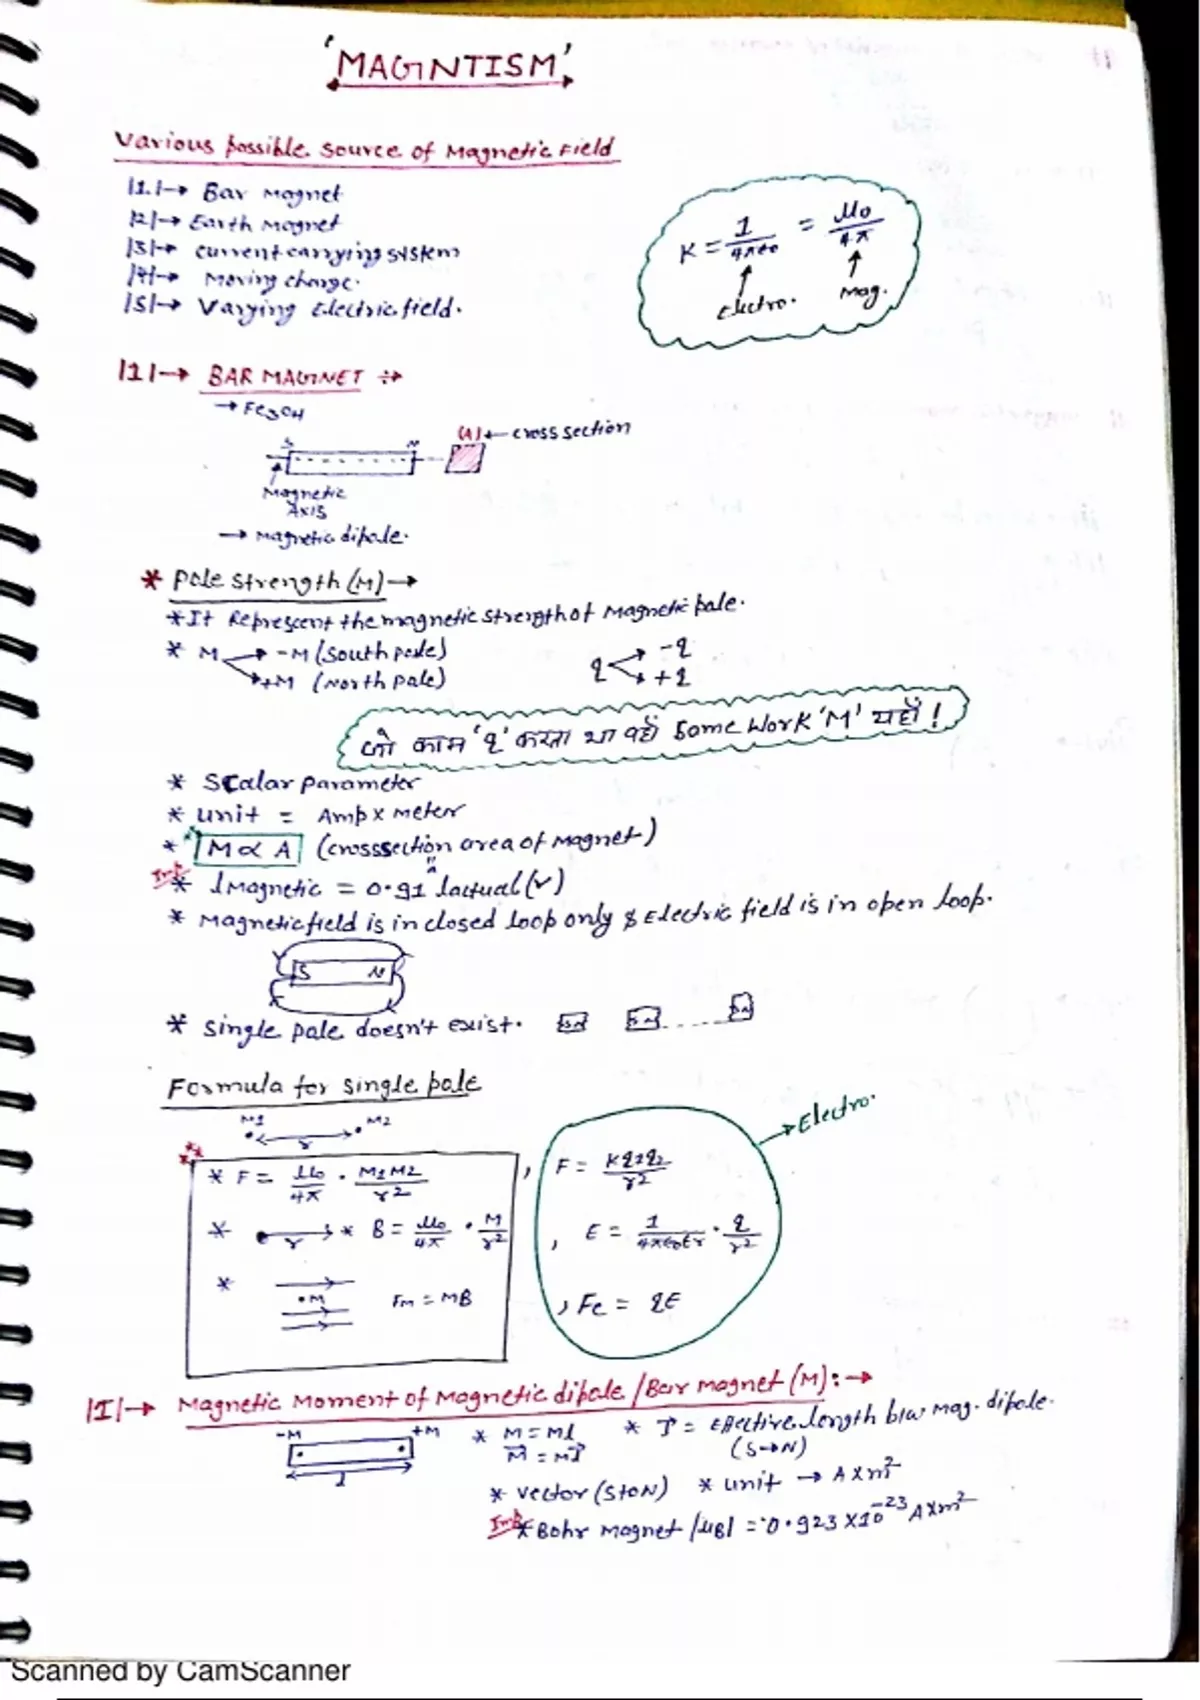 'MAGNTISM'
Various possible source of Magnetic Field
|1.|→ Bar Magnet
|2|→ Earth Magnet
|3|→ current carrying system
|4|→ Moving charge.
|5|→ Varying Electric field.
K = 1/4πε0 = μ0/4π
Electro. Mag.
|1|→ BAR MAGNET
→ Fe3O4
S N (A) ← cross section
Magnetic
Axis
→ Magnetic dipole.
* Pole Strength (M) →
* It Represent the magnetic strength of Magnetic pole.
* M → -M (South pole) q → -q
→ +M (North pole) → +q
जो काम 'q' करता था वहाँ Some Work 'M' यहाँ !
* Scalar parameter
* unit = Amp x meter
* M ∝ A (crosssection area of Magnet)
Imp * lMagnetic = 0.91 lactual (v)
* Magnetic field is in closed loop only & Electric field is in open loop.
S N
* Single pole doesn't exist. SN SN ...... SN
Formula for single pole
M1 M2
r
* F = μ0/4π . M1M2/r² , F = Kq1q2/r² → Electro.
* r * B = μ0/4π . M/r² , E = 1/4πε0εr . q/r²
* .M FM = MB , Fe = qE
|I|→ Magnetic Moment of Magnetic dipole / Bar magnet (M): →
-M +M * M = Ml * l = Effective length b/w mag. dipole.
l M = Ml (S→N)
* vector (S to N) * unit → Axm²
Imp * Bohr magnet |μB| = 0.923 X 10⁻²³ Axm²
Scanned by CamScanner